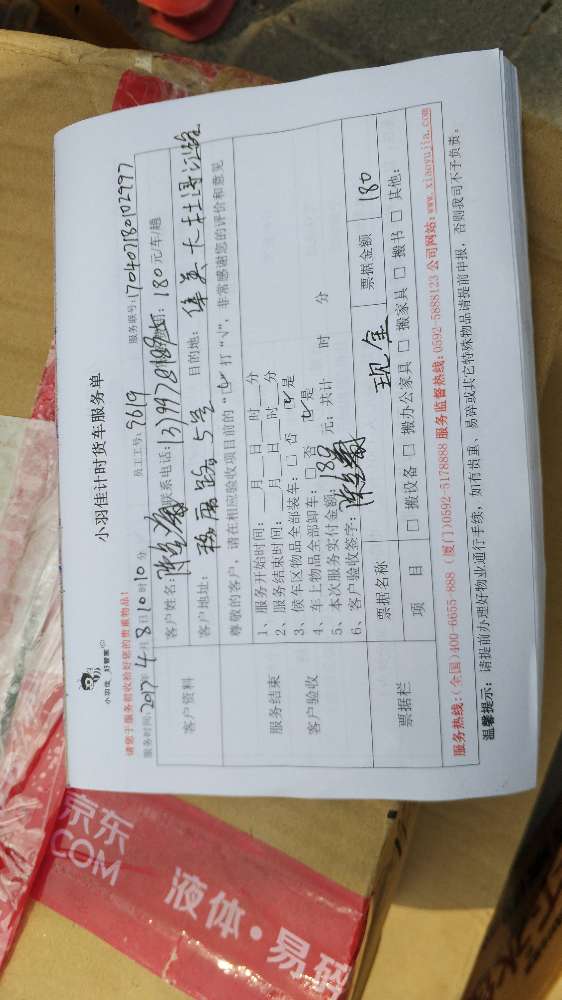 小羽佳 好管家
小羽佳计时货车服务单
请您于服务前收检好您的贵重物品!
服务时间: 2017年4月8日10时10分 员工工号: 9619 服务联号: 170407180102997
客户资料
客户姓名: 联系电话: 180元/车/趟
客户地址: 5号 目的地: 集美
尊敬的客户,请在相应验收项目前的“□”打“√”,非常感谢您的评价和意见
服务结束
客户验收
1、服务开始时间: 月 日 时 分
2、服务结束时间: 月 日 时 分
3、候车区物品全部装车: □ 否 是
4、车上物品全部卸车: □ 否 是
5、本次服务实付金额: 180 元; 共计 时 分
6、客户验收签字:
票据栏
票据名称 现金 票据金额 180
项 目 □ 搬设备 □ 搬办公家具 □ 搬家具 □ 搬书 □ 其他:
服务热线:(全国)400-6655-888 (厦门)0592-5178888 服务监督热线:0592-5888123 公司网站:www.xiaoyujia.com
温馨提示: 请提前办理好物业通行手续,如有贵重、易碎或其它特殊物品请提前申报,否则我司不予负责。
京东
COM
液体·易碎